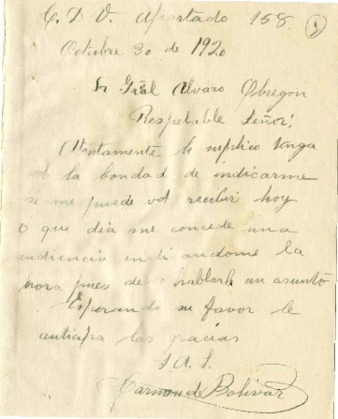 C. D. V. Apartado 158.
Octubre 30 de 1920
Sr Gral Alvaro Obregon
Respetable Señor:
Atentamente le suplico tenga
vd la bondad de indicarme
si me puede vd recibir hoy
o que dia me concede una
audiencia indicandome la
hora pues deseo hablarle un asunto
Esperando su favor le
anticipa las gracias
S. A. S.
Carmon de Bolivar